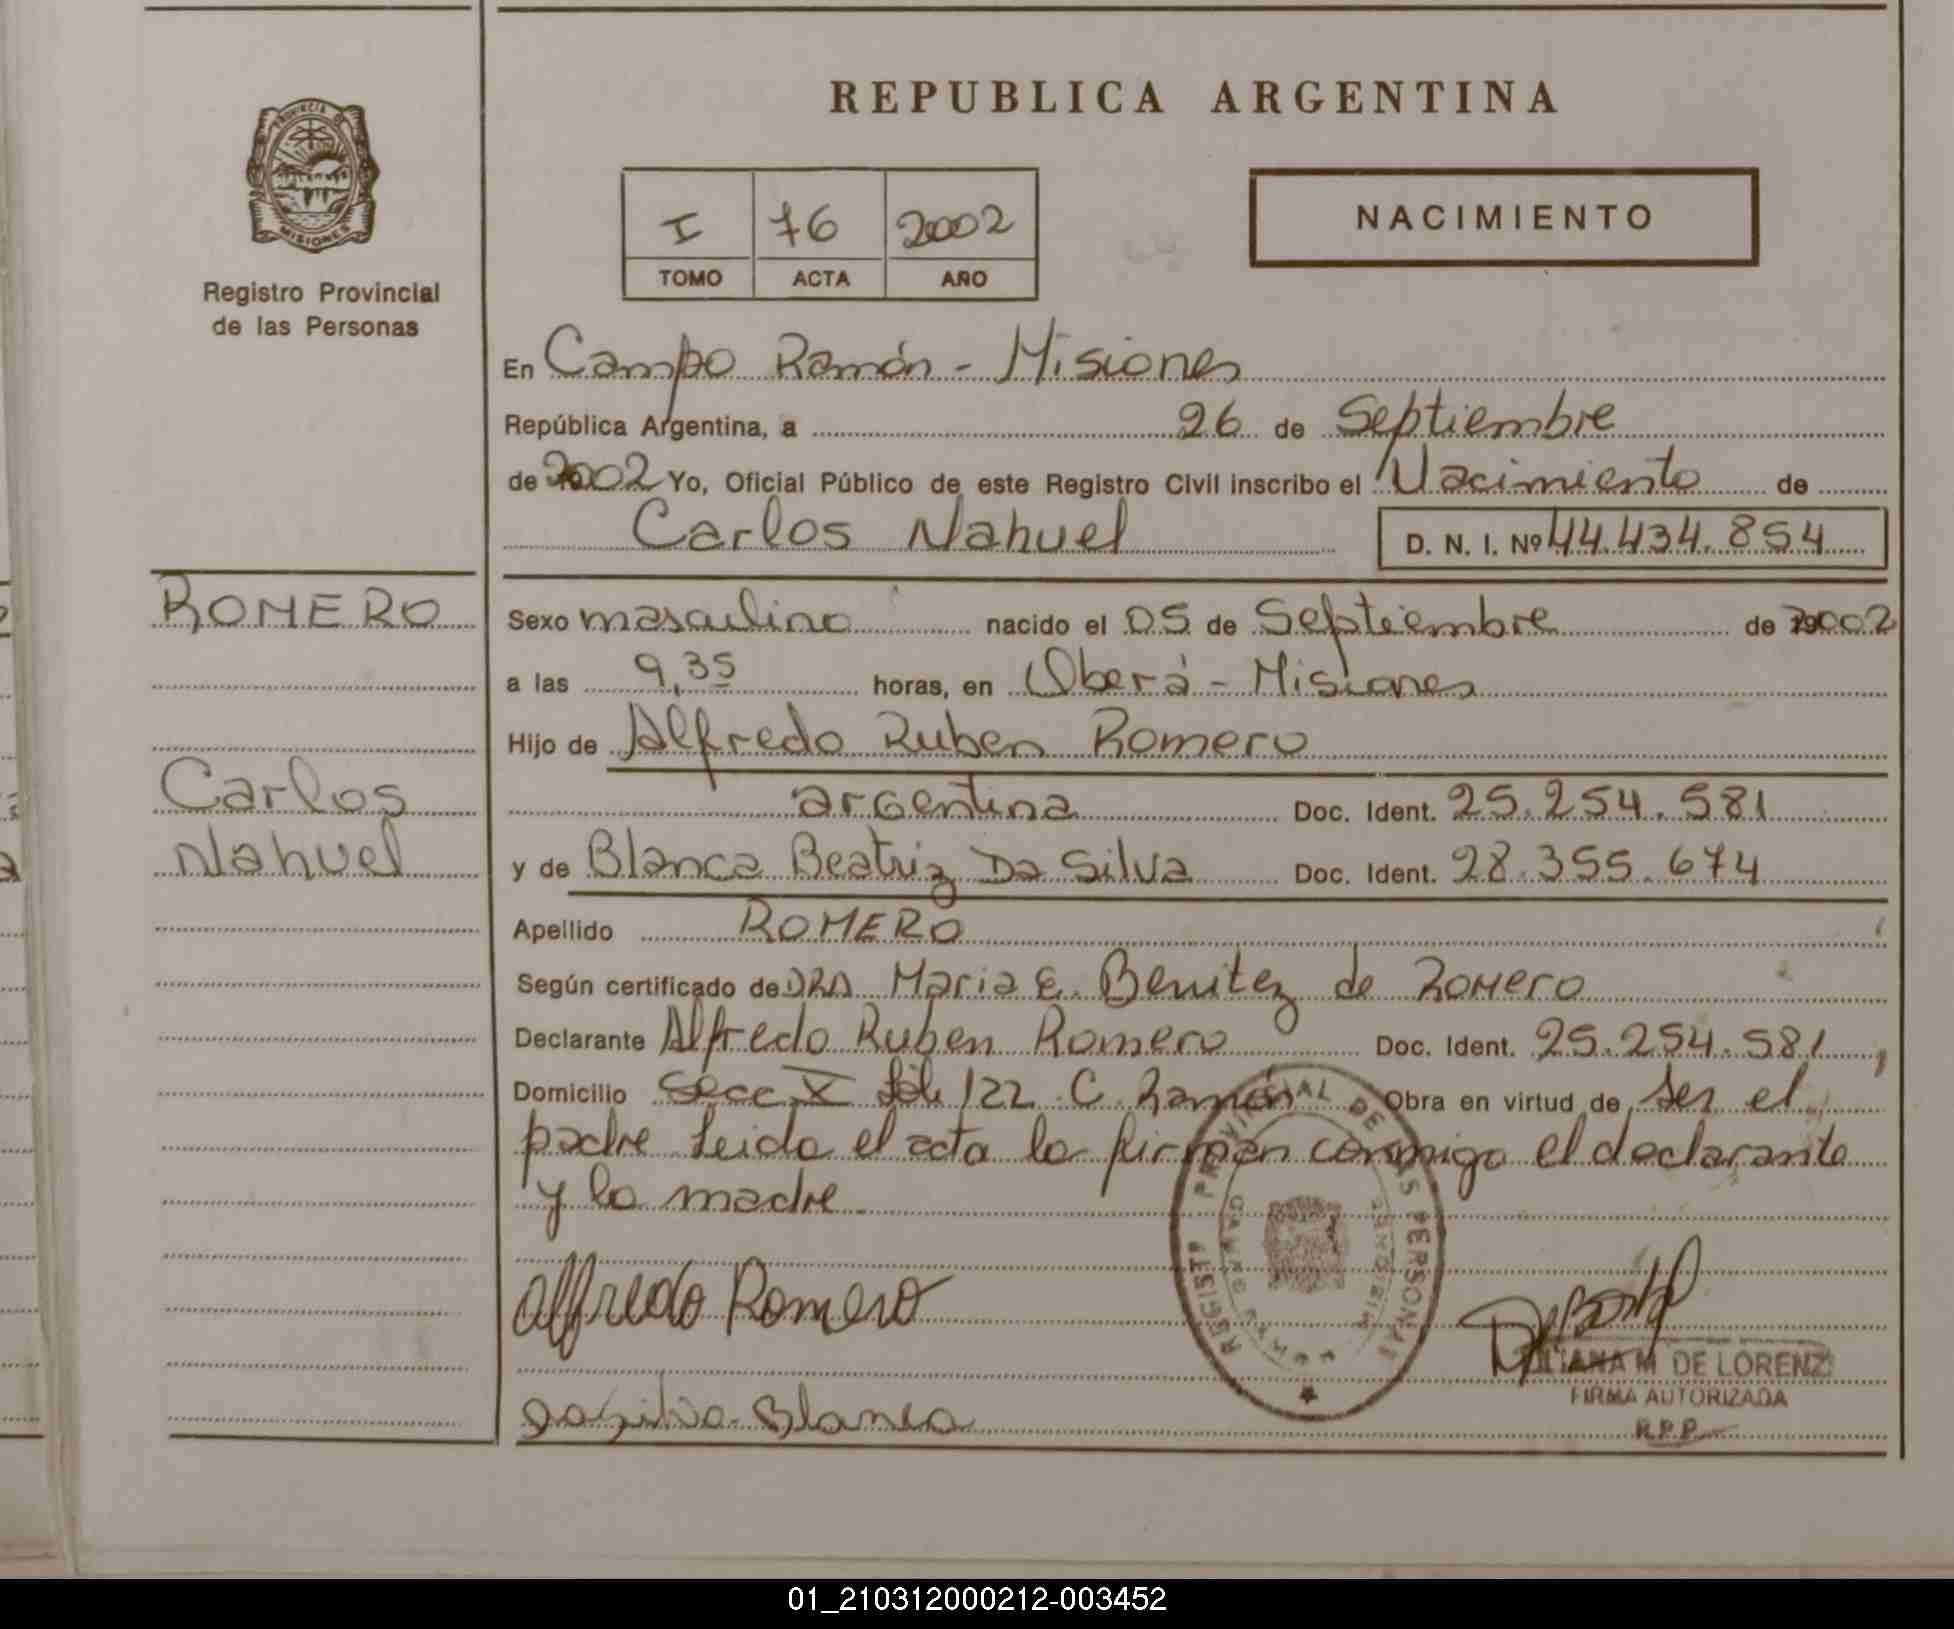 REPUBLICA ARGENTINA
PROVINCIA DE
MISIONES
Registro Provincial
de las Personas
I 76 2002
TOMO ACTA AÑO
NACIMIENTO
En Campo Ramón - Misiones
República Argentina, a 26 de Septiembre
de 2002 Yo, Oficial Público de este Registro Civil inscribo el Nacimiento de
Carlos Nahuel D. N. I. Nº 44.434.854
ROMERO
Carlos
Nahuel
Sexo masculino nacido el 05 de Septiembre de 2002
a las 9,35 horas, en Oberá - Misiones
Hijo de Alfredo Ruben Romero
argentina Doc. Ident. 25.254.581
y de Blanca Beatriz Da Silva Doc. Ident. 28.355.674
Apellido ROMERO
Según certificado de DRA Maria E. Benitez de Romero
Declarante Alfredo Ruben Romero Doc. Ident. 25.254.581,
Domicilio Secc X Lote 122 C. Ramón Obra en virtud de ser el
padre Leida el acta la firman conmigo el declarante
y la madre.
REGISTRO PROVINCIAL DE LAS PERSONAS
Alfredo Romero
LILIANA M. DE LORENZI
FIRMA AUTORIZADA
R.P.P.
Da Silva Blanca
01_210312000212-003452